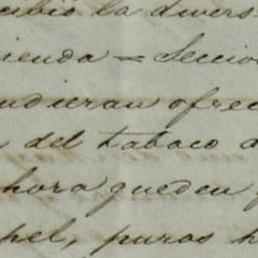 cibió la divers
ienda = Seccio
udieran ofrec
del tabaco a
hora queden
pel, puros h